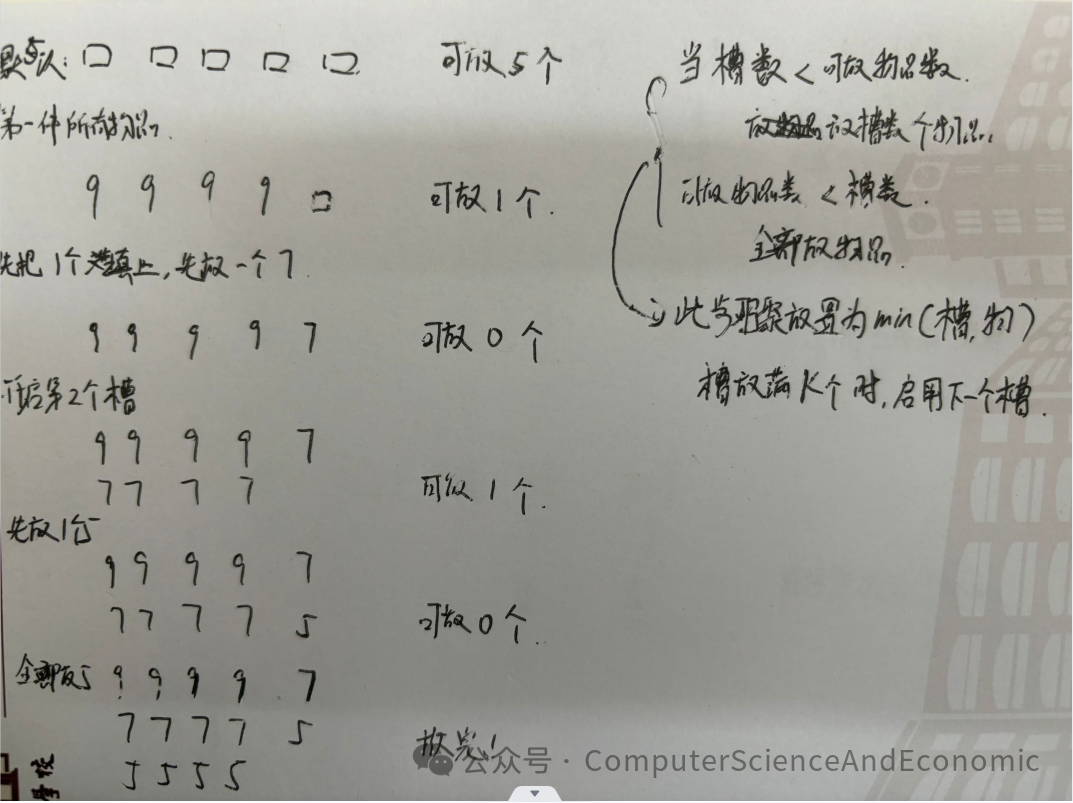 默认: 口 口 口 口 口 可放5个
第一件所有物品.
9 9 9 9 口 可放1个.
先把1个槽填上,先放一个7.
9 9 9 9 7 可放0个
启第2个槽
9 9 9 9 7
7 7 7 7 可放1个.
先放1个5
9 9 9 9 7
7 7 7 7 5 可放0个.
全部放5 9 9 9 9 7
7 7 7 7 5
5 5 5 5
当槽数<可放物品数.
放槽数个物品.
可放物品数<槽数.
全部放物品.
此步骤放置为min(槽,物)
槽放满K个时,启用下一个槽.
学校
公众号·ComputerScienceAndEconomic